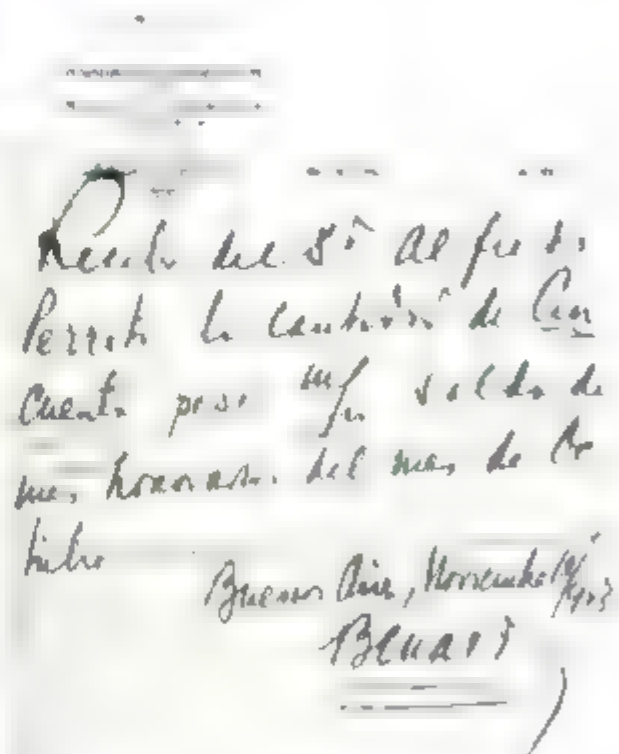 Recibo del Sr Alfredo
Perrot la cantidad de Cin
cuenta pesos m/n saldo de
mes honorarios del mes de Oc
tubre
Buenos Aires, Noviembre